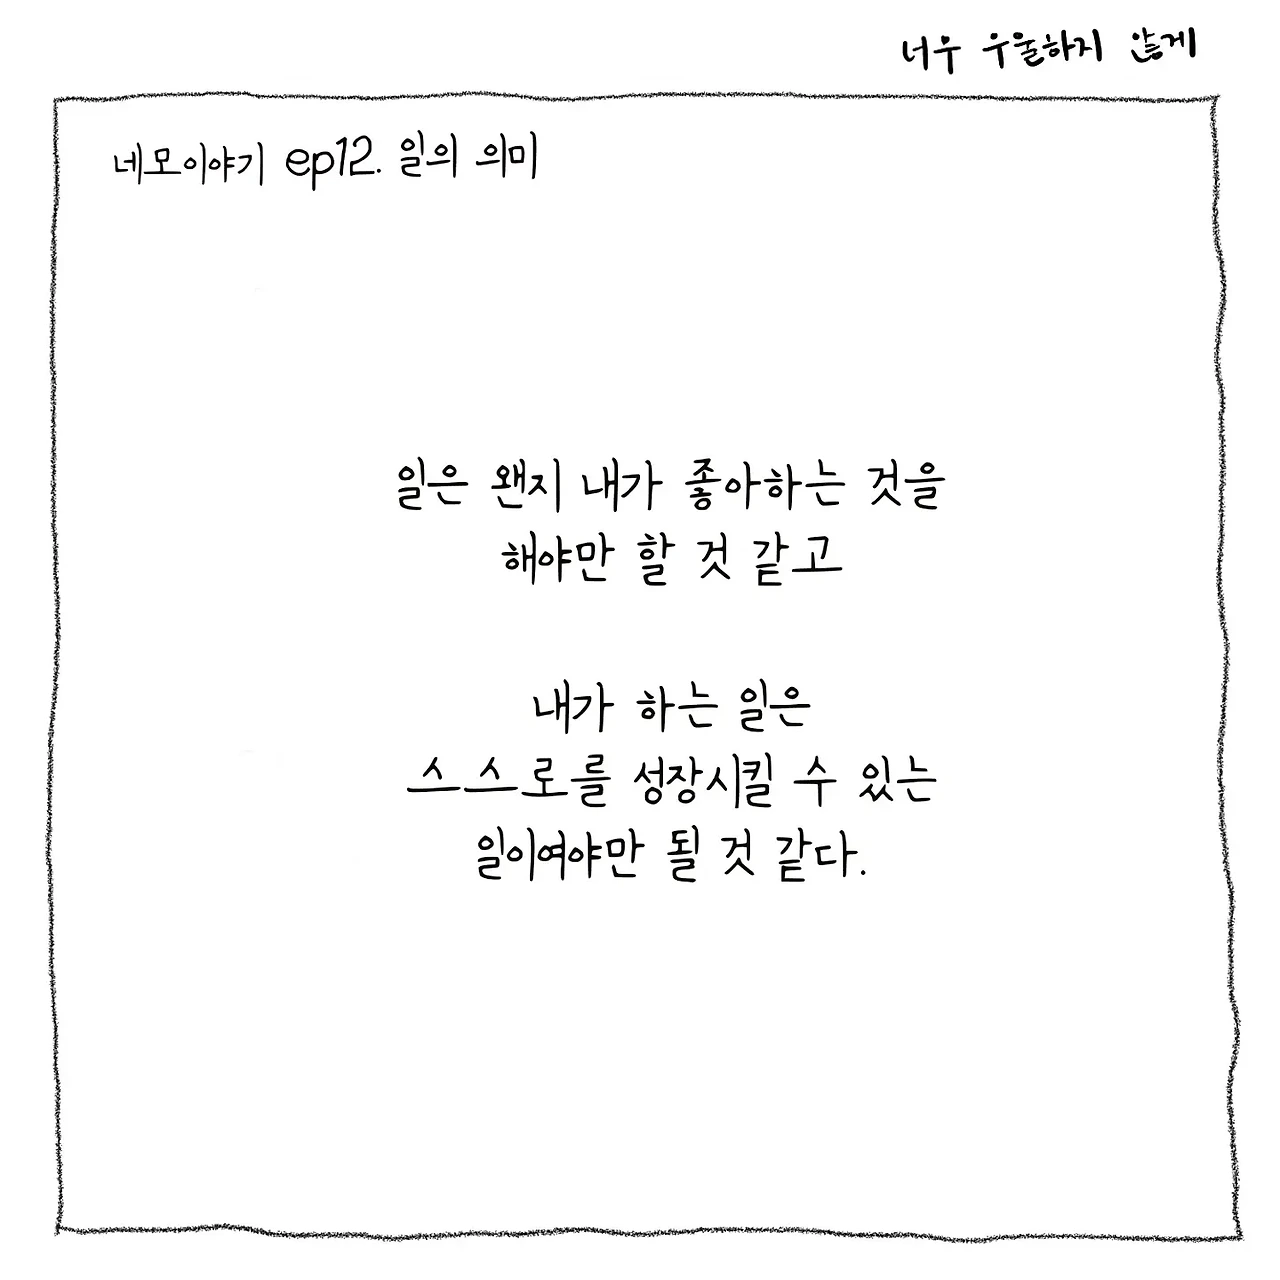 너무 우울하지 않게
네모이야기 ep12. 일의 의미
일은 왠지 내가 좋아하는 것을
해야만 할 것 같고
내가 하는 일은
스스로를 성장시킬 수 있는
일이여야만 될 것 같다.